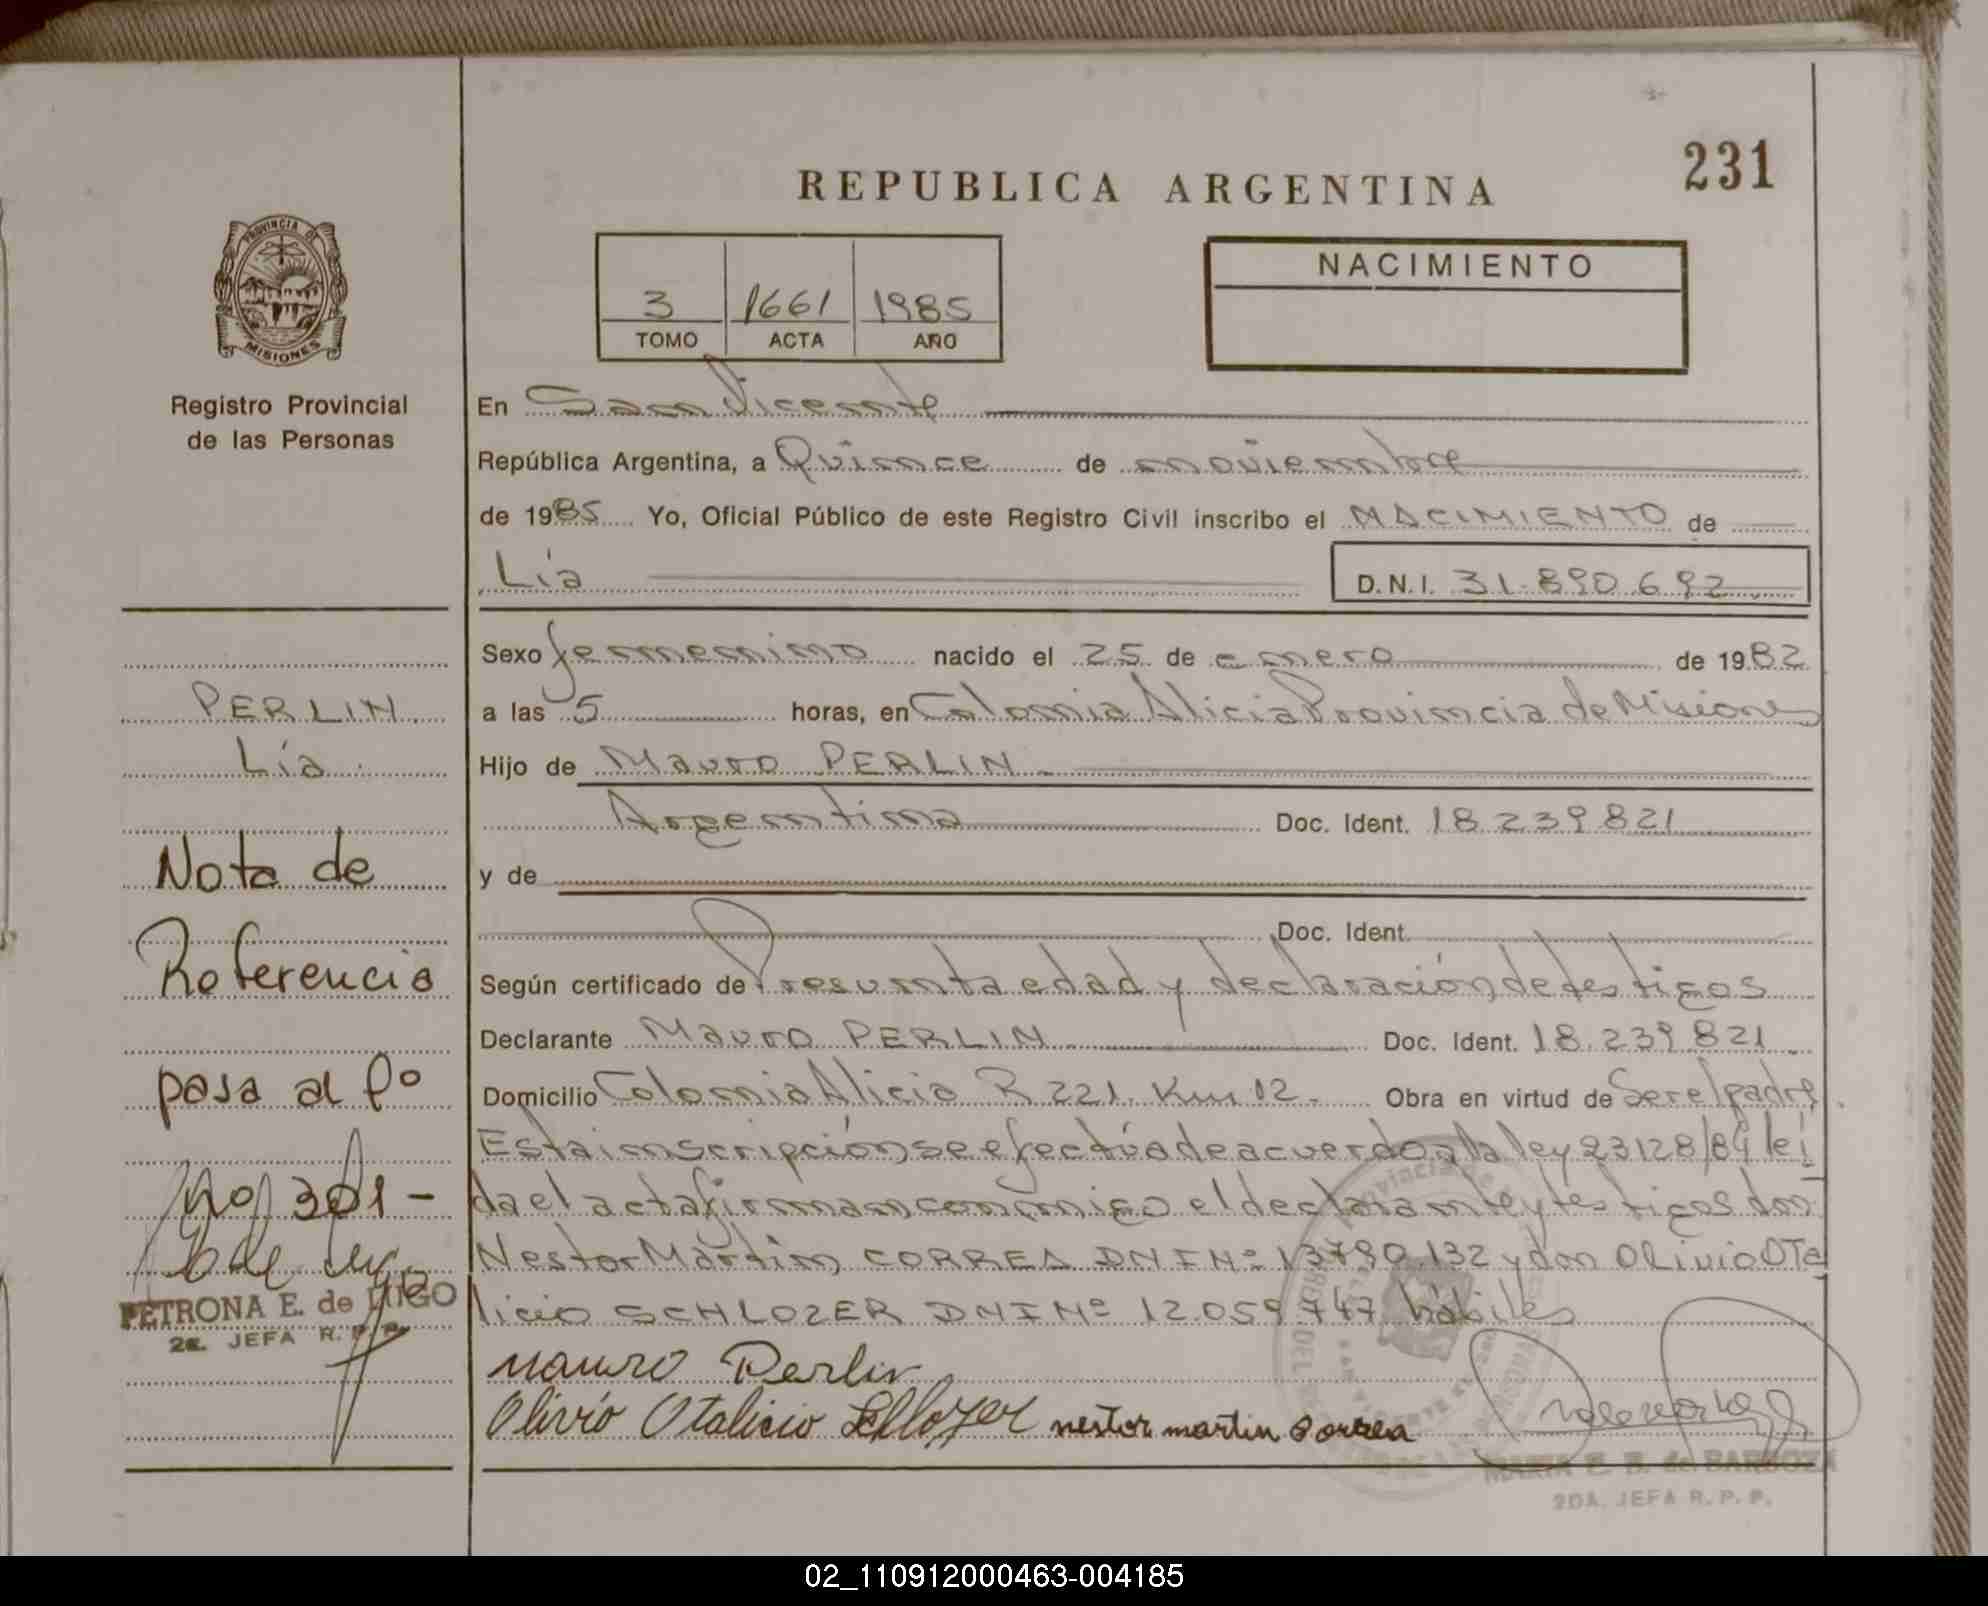 231
REPUBLICA ARGENTINA
PROVINCIA DE
MISIONES
Registro Provincial
de las Personas
3 1661 1985
TOMO ACTA AÑO
NACIMIENTO
En San Vicente
República Argentina, a Quince de noviembre
de 1985 Yo, Oficial Público de este Registro Civil inscribo el NACIMIENTO de
Lía D.N.I. 31.890.692
Sexo femenino nacido el 25 de enero de 1982
a las 5 horas, en Colonia Alicia Provincia de Misiones
Hijo de Mauro PERLIN
Argentina Doc. Ident. 18.239.821
y de
Doc. Ident.
Según certificado de Presunta edad y declaración de testigos
Declarante Mauro PERLIN Doc. Ident. 18.239.821
Domicilio Colonia Alicia R 221 Km 12. Obra en virtud de Ser el padre.
Esta inscripción se efectúa de acuerdo a la ley 23128/84 leí
da el acta firman conmigo el declarante y testigos don
Nestor Martin CORREA DNI Nº 13.790.132 y don Olivio OTa
licio SCHLOZER DNI Nº 12.059.747 hábiles
Mauro Perlin
Olivio Otalicio nestor martin Correa
MARIA E. B. de BARBOZA
2DA. JEFA R. P. P.
PERLIN
Lía
Nota de
Referencia
pasa al fº
Nº 301-
PETRONA E. de LUGO
2a. JEFA R. P. P.
02_110912000463-004185